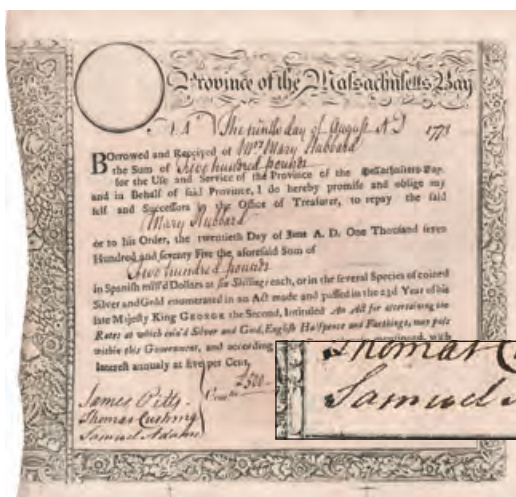 Province of the Massachusetts Bay
The tenth day of August AD 1773
BOrrowed and Received of Mrs Mary Hubbard
the Sum of five hundred pounds
for the Use and Service of the Province of the Massachusetts-Bay.
and in Behalf of said Province, I do hereby promise and oblige my
self and Successors in the Office of Treasurer, to repay the said
Mary Hubbard
or to his Order, the twentieth Day of June A. D. One Thousand seven
Hundred and seventy Five the aforesaid Sum of
five hundred pounds
in Spanish mill'd Dollars at six Shillings each, or in the several Species of coined
Silver and Gold enumerated in an Act made and passed in the 23d Year of his
late Majesty King GEORGE the Second, Intituled An Act for ascertaining the
Rates at which coin'd Silver and Gold, English Halfpence and Farthings, may pass
within this Government, and according
with
Interest annualy at five per Cent,
£500
James Pitts
Thomas Cushing
Samuel Adams
Thomas C
Samuel